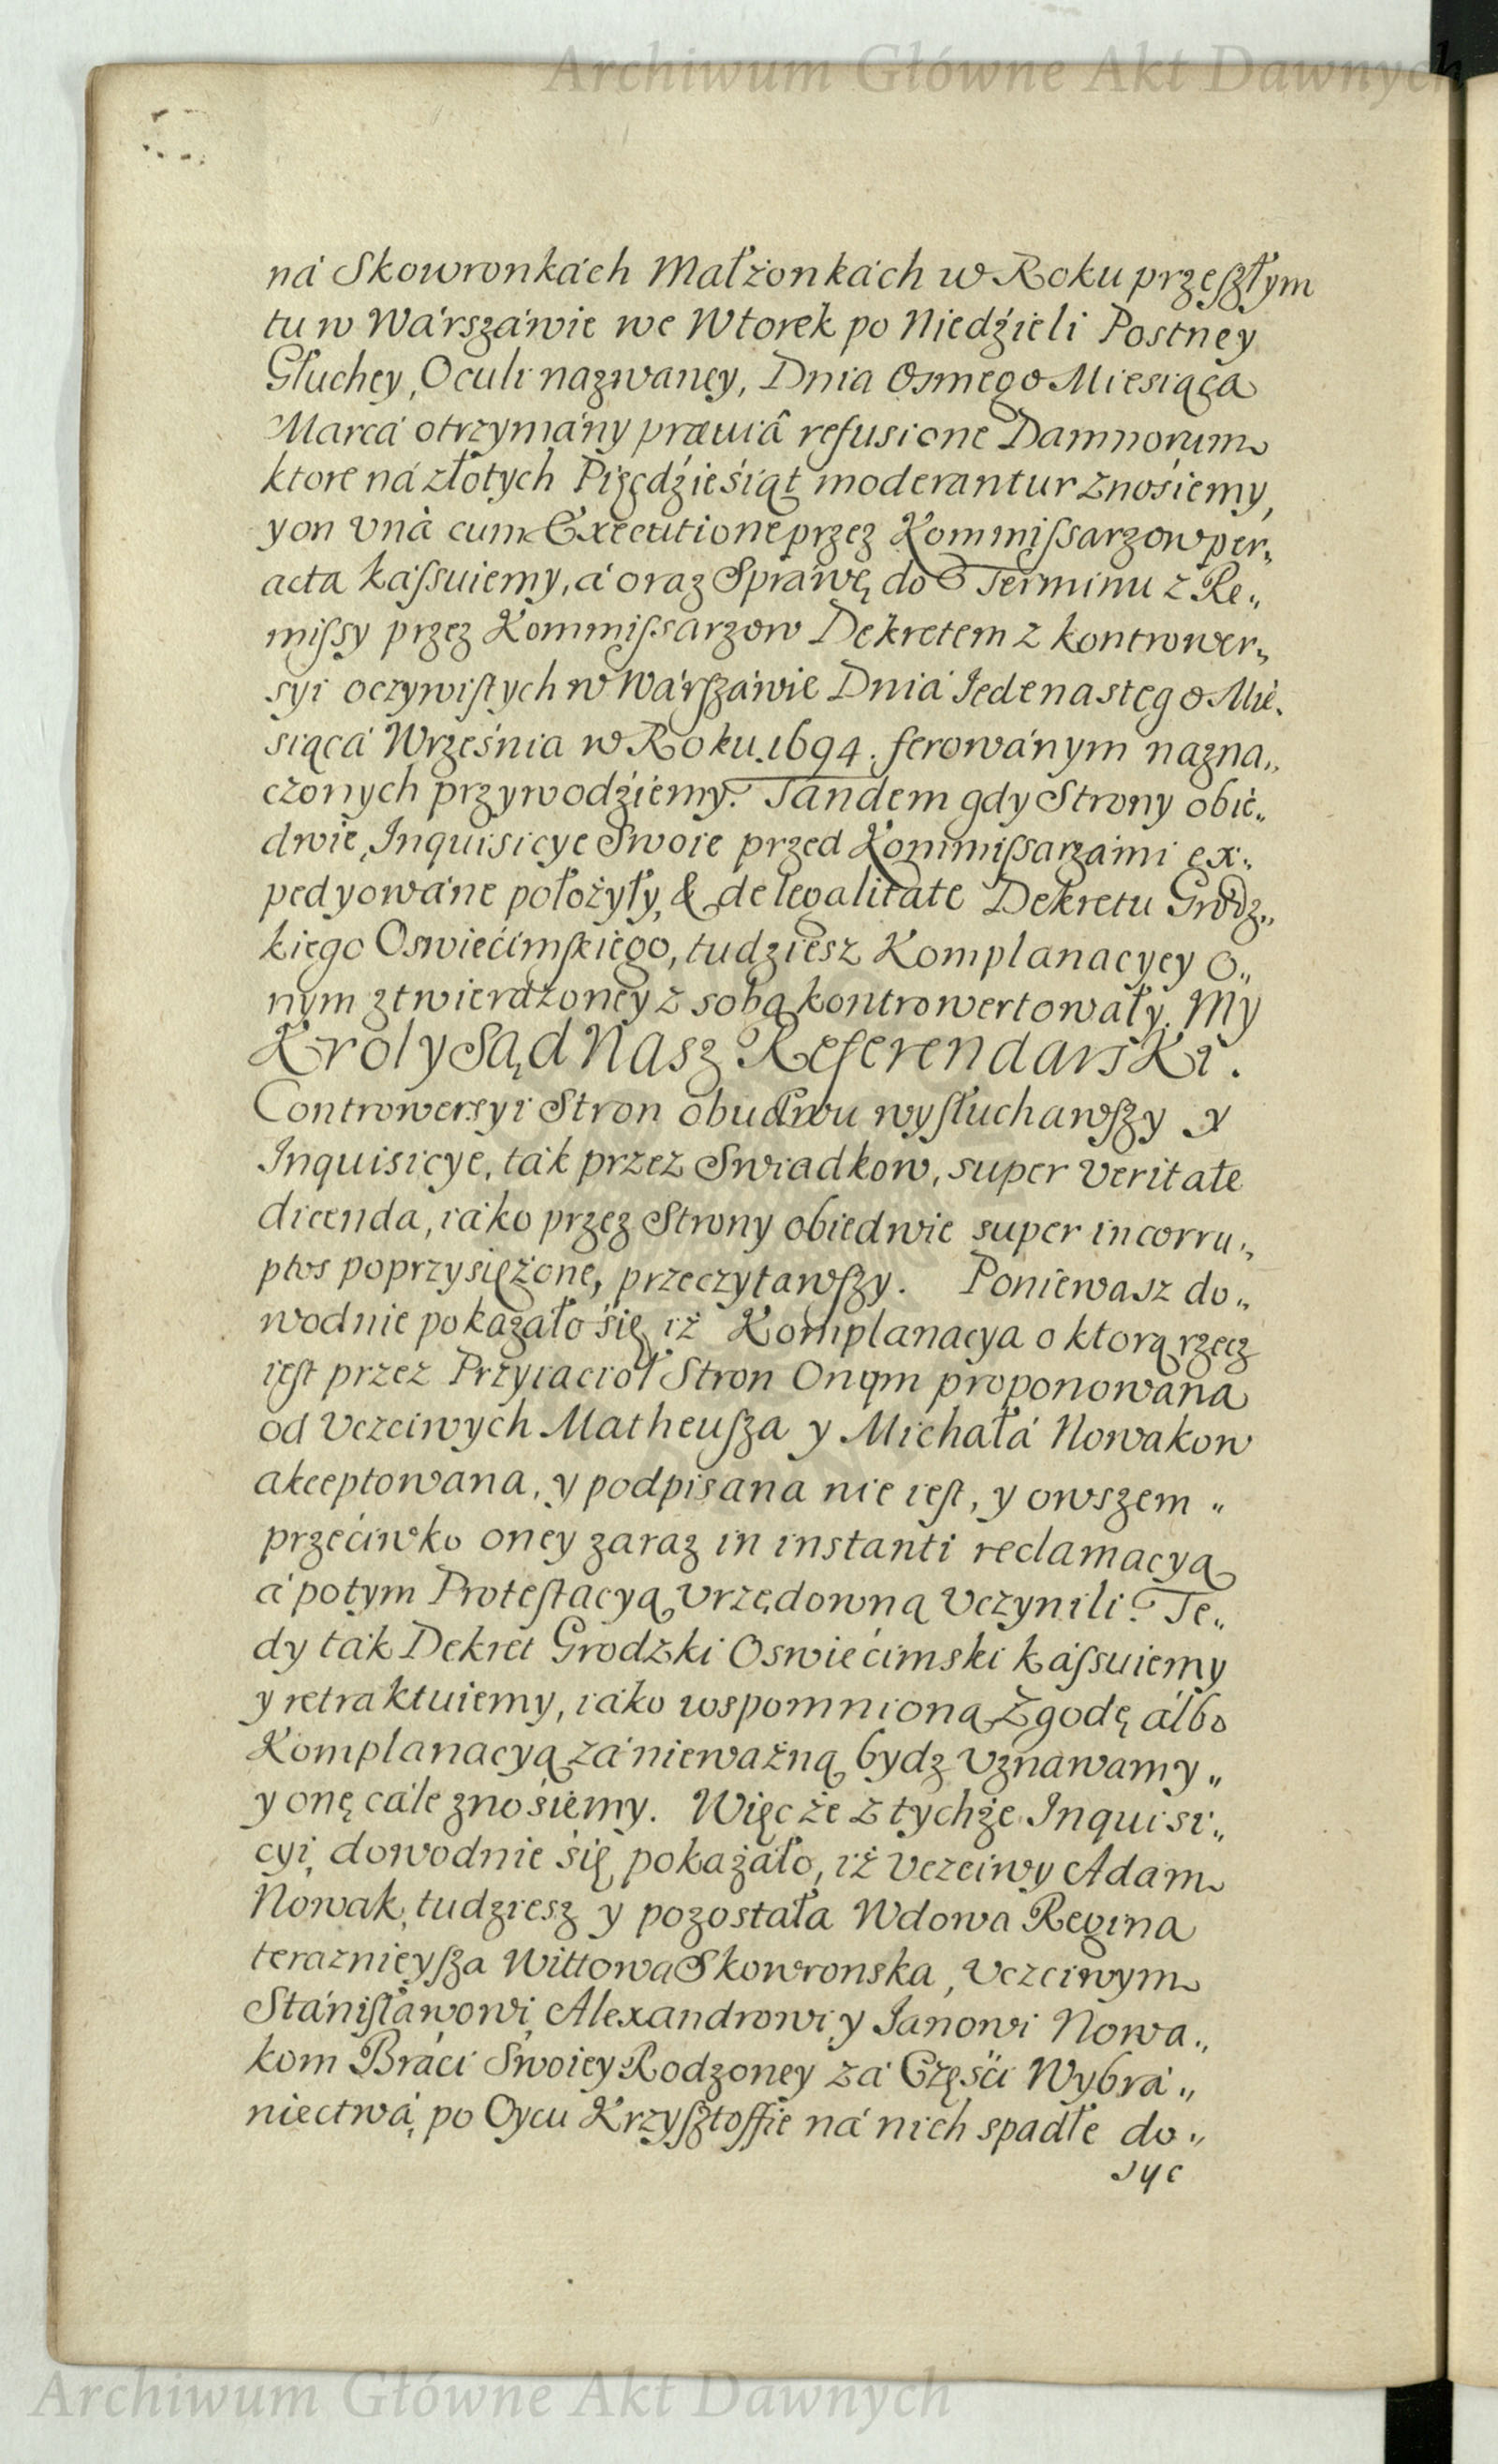 Archiwum Główne Akt Dawnych
ná Skowronkách Małżonkách w Roku przeſzłym
tu w Wárszáwie we Wtorek po Niedźieli Postney
Głuchey, Oculi nazwaney, Dnia Osmego Miesiąca
Marcá otrzymány præviâ refusione Damnorum
ktore ná złotych Pięćdźieśiąt moderantur znośiemy,
y on vnà cum Executione przez Kommiſsarzow per„
acta káſsuiemy, á oraz Sprawę do Terminu z Re„
miſsy przez Kommiſsarzow Dekretem z kontrower„
syi oczywiſtych w Wárſzáwie Dniá Iedenastego Mie„
siącá Września w Roku 1694. ferowánym nazna„
czonych przywodźiemy. Tandem gdy Strony obie„
dwie, Inquisicye Swoie przed Kommiſsarzámi ex„
pedyowáne położyły, & de legalitate Dekretu Grodz„
kiego Oswiećimſkiego, tudziesz Komplanacyey o„
nym ztwierdzoney z sobą kontrowertowały. My
Krol y Sąd Nasz Referendarski.
Controwersyi Stron obudwu wyſłuchawſzy y
Inquisicye, ták przez Swiadkow, super veritate
dicenda, iáko przez Strony obiedwie super incorru„
ptos poprzysiężone, przeczytawſzy. Poniewasz do„
wodnie pokazáło się iż Komplanacya o ktorą rzecz
ieſt przez Przyiacioł Stron Onym proponowana
od Vczciwych Matheuſza y Michałá Nowakow
akceptowana, y podpisana nie ieſt, y owszem „
przećiwko oney zaraz in instanti reclamacyą
á potym Proteſtacyą Vrzędowną Vczynili. Te„
dy ták Dekret Grodzki Oswiećimski káſsuiemy
y retraktuiemy, iáko wspomnioną Zgodę álbo
Komplanacyą zá nieważną bydz Vznawamy „
y onę cále znośiemy. Więc że z tychże Inquisi„
cyi dowodnie śię pokazáło, iż Vczciwy Adam
Nowak, tudziesz y pozostała Wdowa Regina
teraznieyſza Wittowa Skowronska, Vczciwym
Stániſławowi, Alexandrowi y Ianowi Nowa„
kom Bráci Swoiey Rodzoney zá Częśći Wybrá„
niectwá, po Oycu Krzyſztoffie ná nich spadłe do„
syc
Archiwum Główne Akt Dawnych